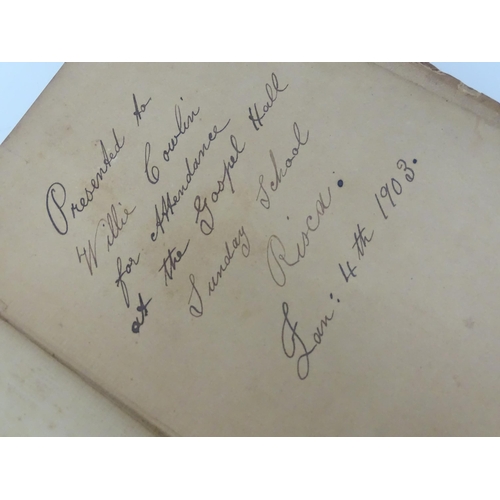 Presented to
Willie Cowlin
for Attendance
at the Gospel Hall
Sunday School
Risca.
Jan: 4th 1903.